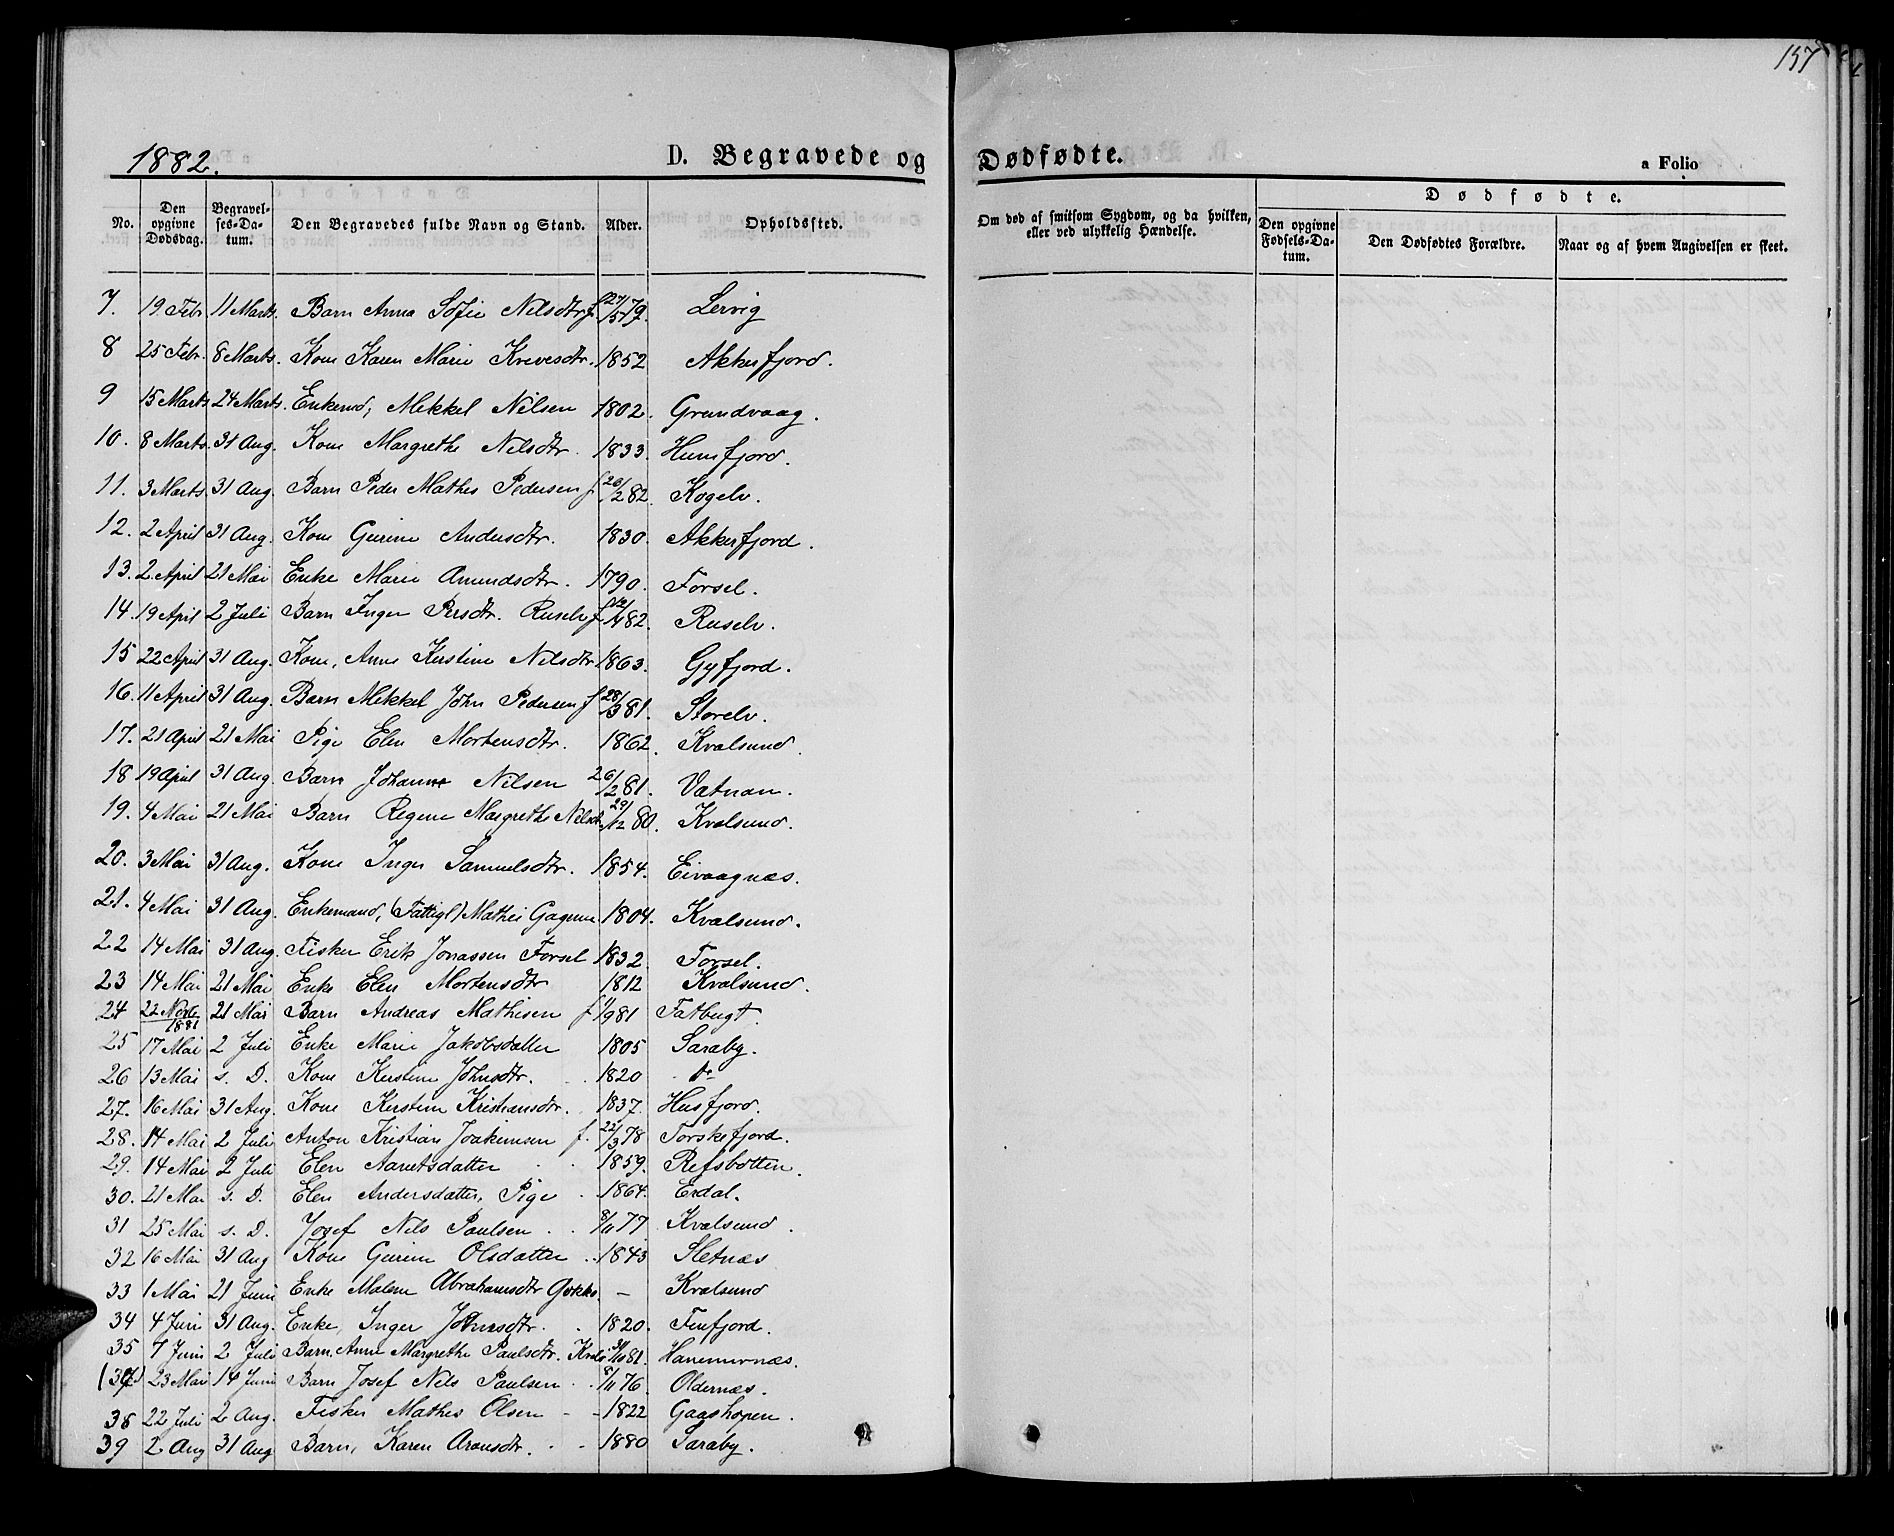 157
1882. D. Begravede og Dødfødte. a Folio
No. Den opgivne Dødsdag. Begravelses-Datum. Den Begravedes fulde Navn og Stand. Alder. Opholdssted. Om død af smitsom Sygdom, og da hvilken, eller ved ulykkelig Hændelse. Dødfødte. Den opgivne Fødsels-Datum. Den Dødfødtes Forældre. Naar og af hvem Angivelsen er skeet.
7. 19 Febr. 11 Marts. Barn Anna Sofie Nilsdtr f 27/5 79. Lervig
8 25 Febr. 8 Marts. Kone Karen Marie Krevesdtr. 1852 Akkerfjord.
9 15 Marts 24 Marts. Enkemd, Mikkel Nilsen 1802. Grundvaag.
10. 8 Marts 31 Aug. Kone Margrethe Nilsdtr. 1833. Husfjord.
11. 3 Marts 31 Aug. Barn Peder Mathis Pedersen f 26/2 82. Kogelv.
12. 2 April 31 Aug. Kone Gurine Andersdtr. 1830. Akkerfjord.
13. 2 April 21 Mai Enke Marie Amundsdtr. 1790. Forsøl.
14. 19 April 2 Juli Barn Inger Persdtr. Ruselv f 82. Ruselv.
15 22 April 31 Aug. Kone, Anne Kerstine Nilsdtr 1863. Gyfjord.
16. 11 April 31 Aug. Barn Mikkel John Pedersen f 28/3 81. Storelv.
17. 21 April 21 Mai Pige Elen Mortensdtr. 1862. Kvalsund.
18 19 April 31 Aug. Barn Johan Nilsen 26/2 81. Vatnan.
19. 4 Mai 21 Mai Barn Regine Margrethe Nilsdtr 29/12 80. Kvalsund.
20. 3 Mai 31 Aug. Kone Inger Samuelsdtr. 1854. Eivaagnæs.
21. 4 Mai 31 Aug. Enkemand, (Fattigl) Mathis 1804. Kvalsund.
22 14 Mai 31 Aug. Fisker Erik Jonassen Forsøl 1832. Forsøl.
23 14 Mai 21 Mai Enke Elen Mortensdtr 1812 Kvalsund.
24 22 Novbr 1881 21 Mai Barn Andreas Mathisen f 1/9 81 Fatbugt.
25 17 Mai 2 Juli Enke Marie Jakobsdatter 1805 Saraby.
26 13 Mai s. D. Kone Kerstine Johnsdtr. 1820 do
27. 16 Mai 31 Aug. Kone Kerstine Kristiansdtr. 1837. Husfjord.
28. 14 Mai 2 Juli Anton Kristian Joakimsen f. 22/3 78 Torskefjord.
29. 14 Mai 2 Juli Elen Aanetsdatter 1859. Refsbotten.
30. 21 Mai s. D. Elen Andersdatter, Pige 1864. Erdal.
31 25 Mai s. D. Josef Nils Paulsen 8/11 77. Kvalsund.
32 16 Mai 31 Aug Kone Gurine Olsdatter 1843 Sletnæs
33 1 Mai 21 Juni Enke Malene Abrahamsdtr — Kvalsund
34 4 Juni 31 Aug. Enke, Inger Johnsdtr. 1820. Finfjord.
35 7 Juni 2 Juli Barn, Anne Margrethe Paulsdtr. 81. Hanemarnæs.
(37) 23 Mai 14 Juni Barn Josef Nils Paulsen 8/11 76. Oldernæs.
38 22 Juli 2 Aug. Fisker Mathis Olsen 1822 Gaashopen.
39 2 Aug 31 Aug Barn, Karen Aronsdtr. 1880 Saraby.